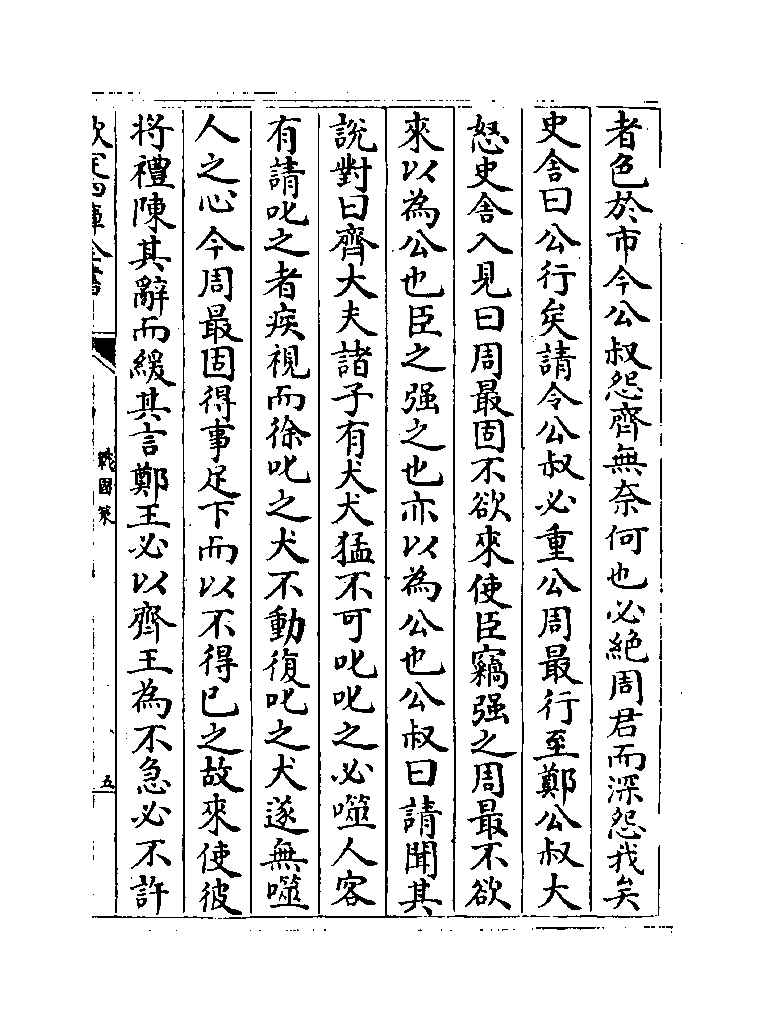 者色於市今公叔怨齊無奈何也必絶周君而深怨我矣
史舍曰公行矣請令公叔必重公周最行至鄭公叔大
怒史舍入見曰周最固不欲來使臣竊强之周最不欲
來以為公也臣之强之也亦以為公也公叔曰請聞其
説對曰齊大夫諸子有犬犬猛不可叱叱之必噬人客
有請叱之者疾視而徐叱之犬不動復叱之犬遂無噬
人之心今周最固得事足下而以不得已之故來使彼
將禮陳其辭而緩其言鄭王必以齊王為不急必不許
欽定四庫全書
戰國策
五